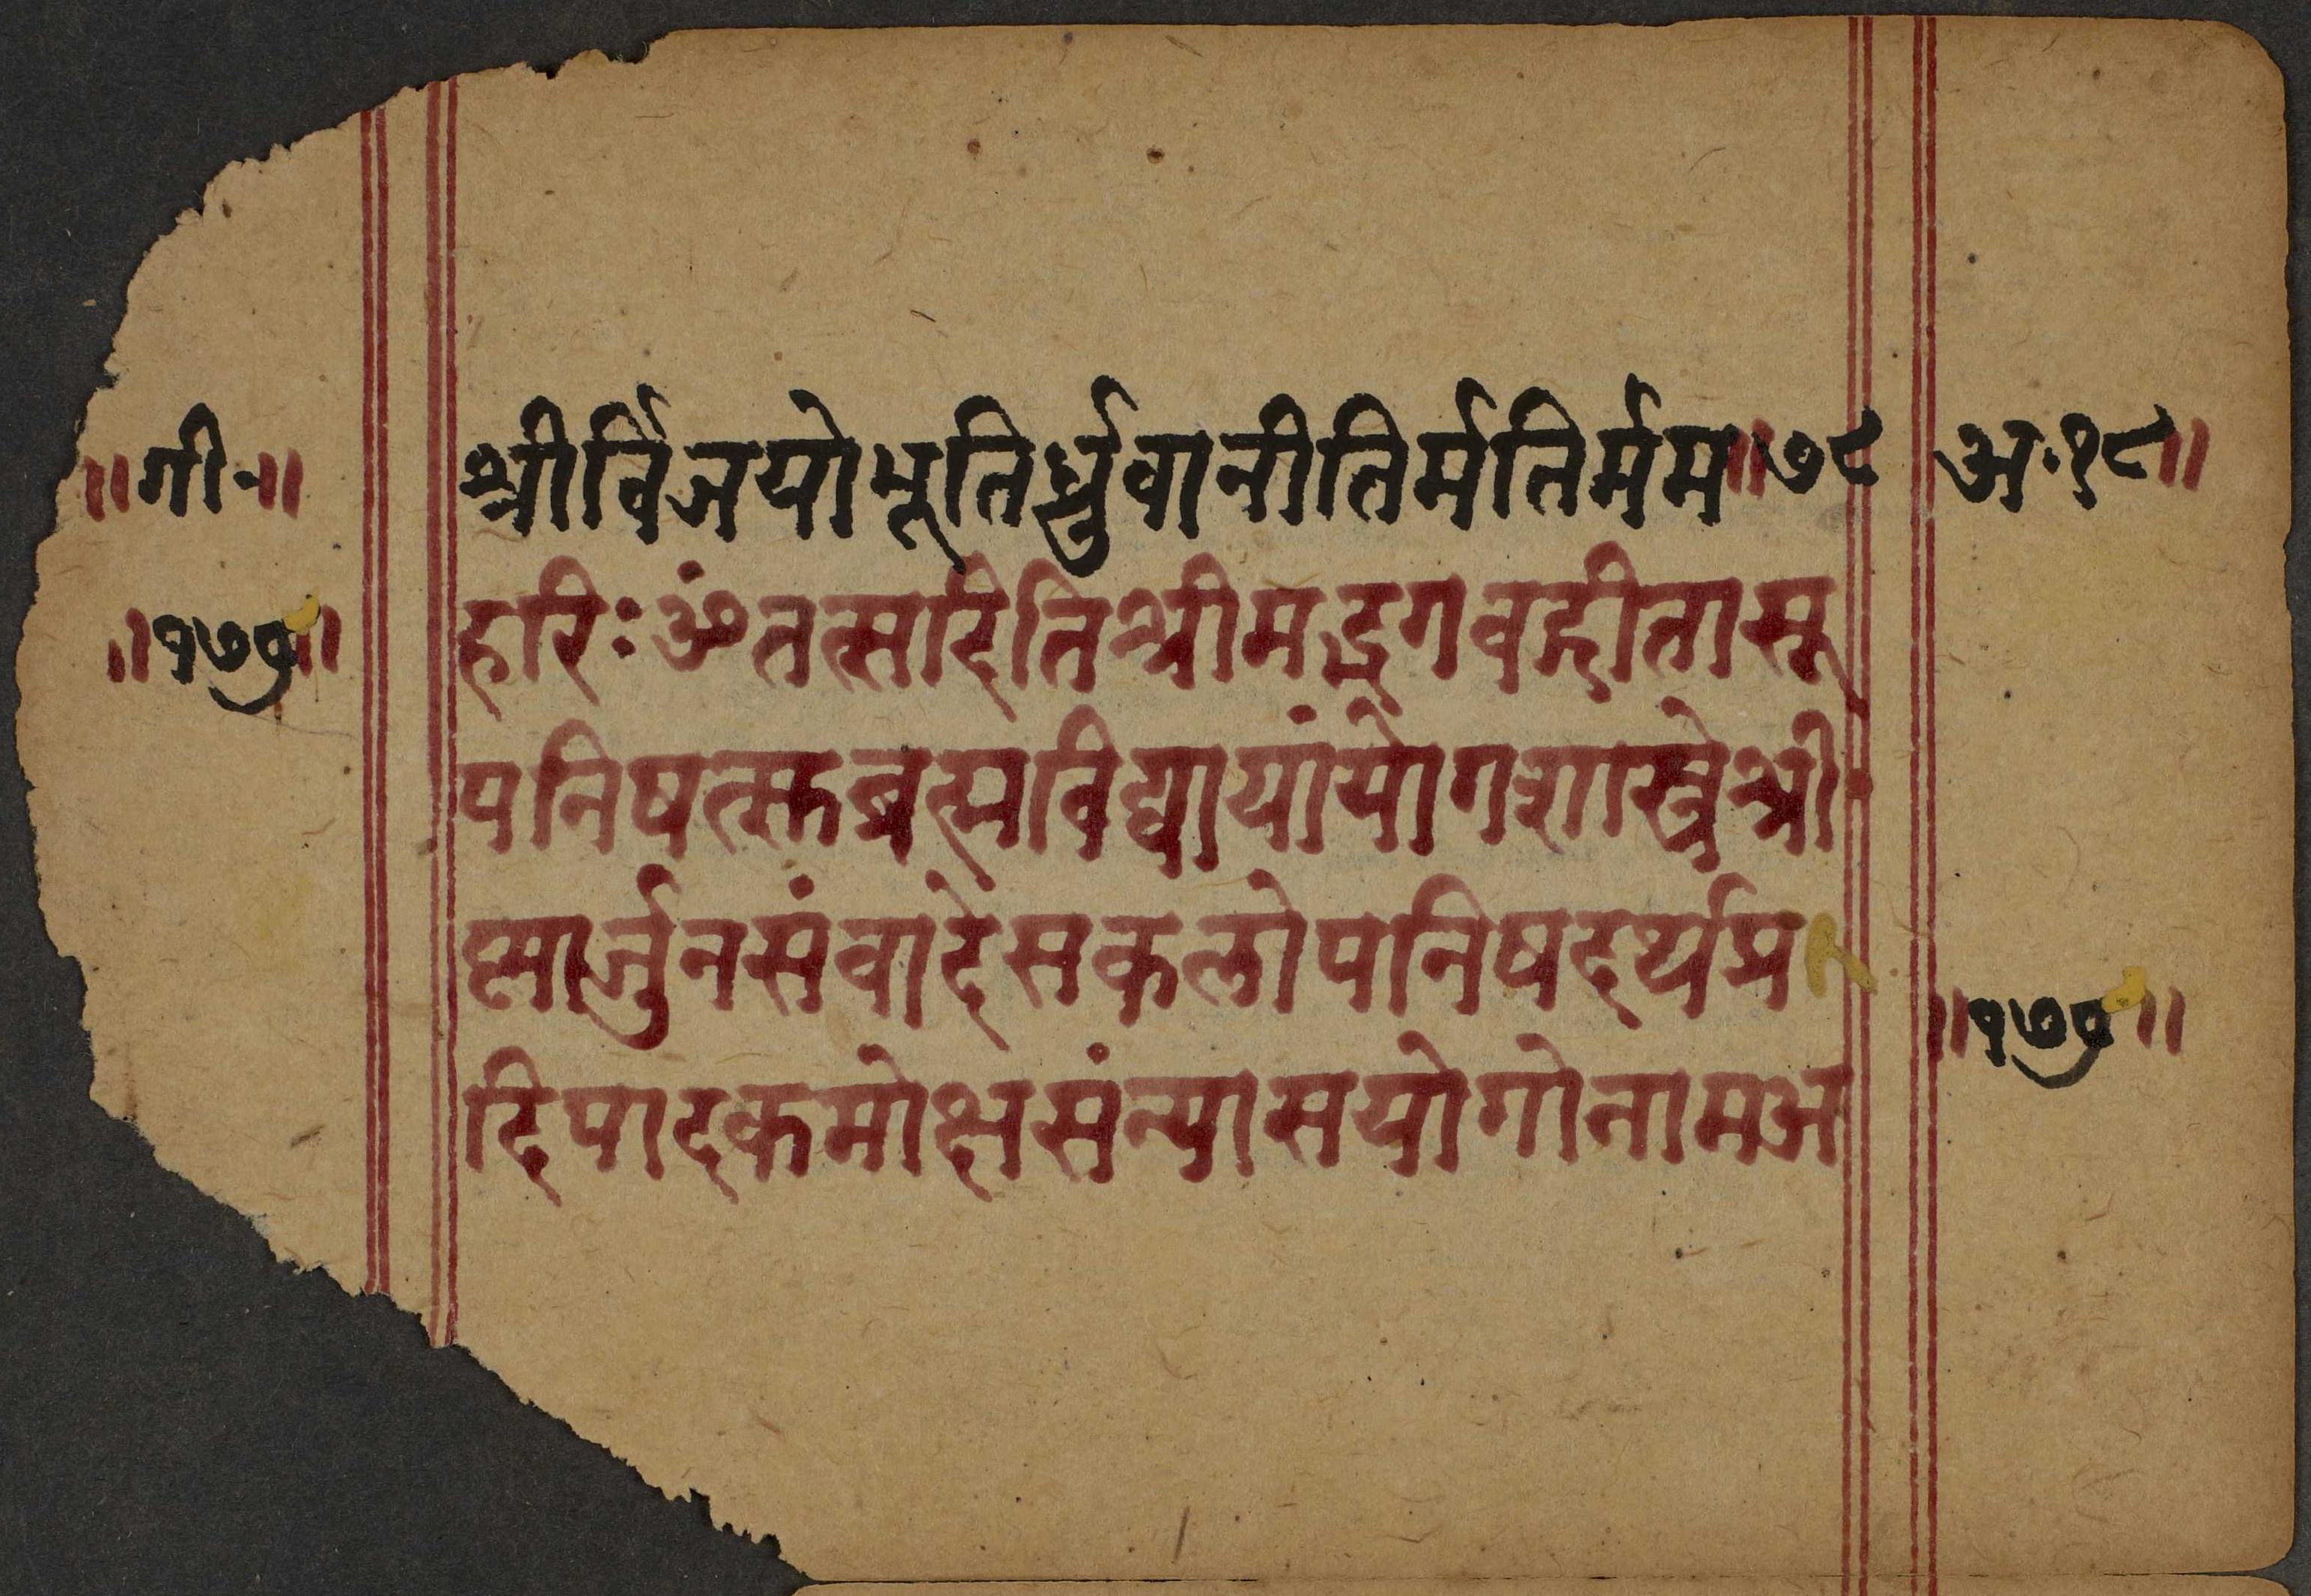 ॥गी॰॥ श्रीर्विजयोभूतिर्ध्रुवानीतिर्मतिर्मम॥७८ अ॰१८॥
॥१७९॥ हरिः ॐ तत्सदितिश्रीमद्भगवद्गीतासू
पनिषत्सुब्रह्मविद्यायांयोगशास्त्रेश्री
कृष्णार्जुनसंवादेसकलोपनिषदर्थप्र
॥१७९॥
दिपादकमोक्षसंन्यासयोगोनामअ